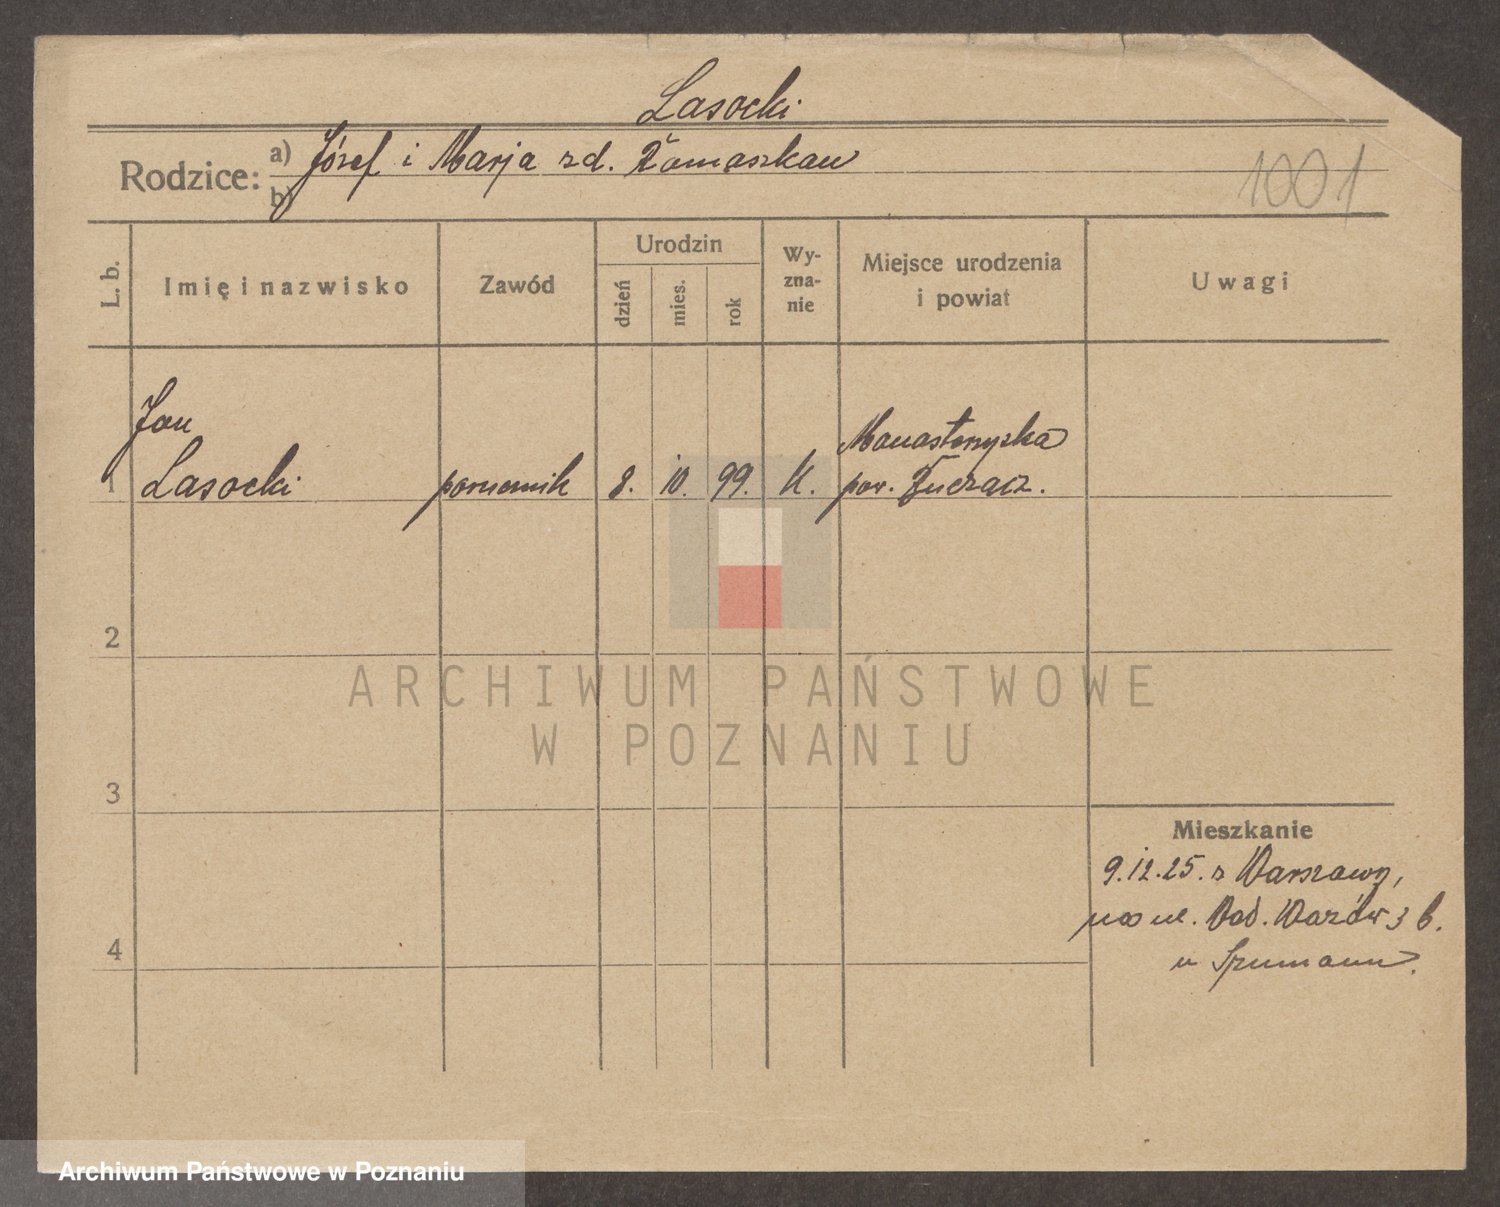 Lasocki
Rodzice: a) Józef i Marja zd. Tomaszkow
b)
1001
L. b.
Imię i nazwisko
Zawód
Urodzin
dzień
mies.
rok
Wy-
zna-
nie
Miejsce urodzenia
i powiat
Uwagi
Jan
1 Lasocki porucznik 8. 10. 99. K. Monasterzyska
pow. Buczacz.
2
3
4
Mieszkanie
9.12.25. z Warszawy,
na ul. Wazów 3 b.
u
ARCHIWUM PAŃSTWOWE
W POZNANIU
Archiwum Państwowe w Poznaniu